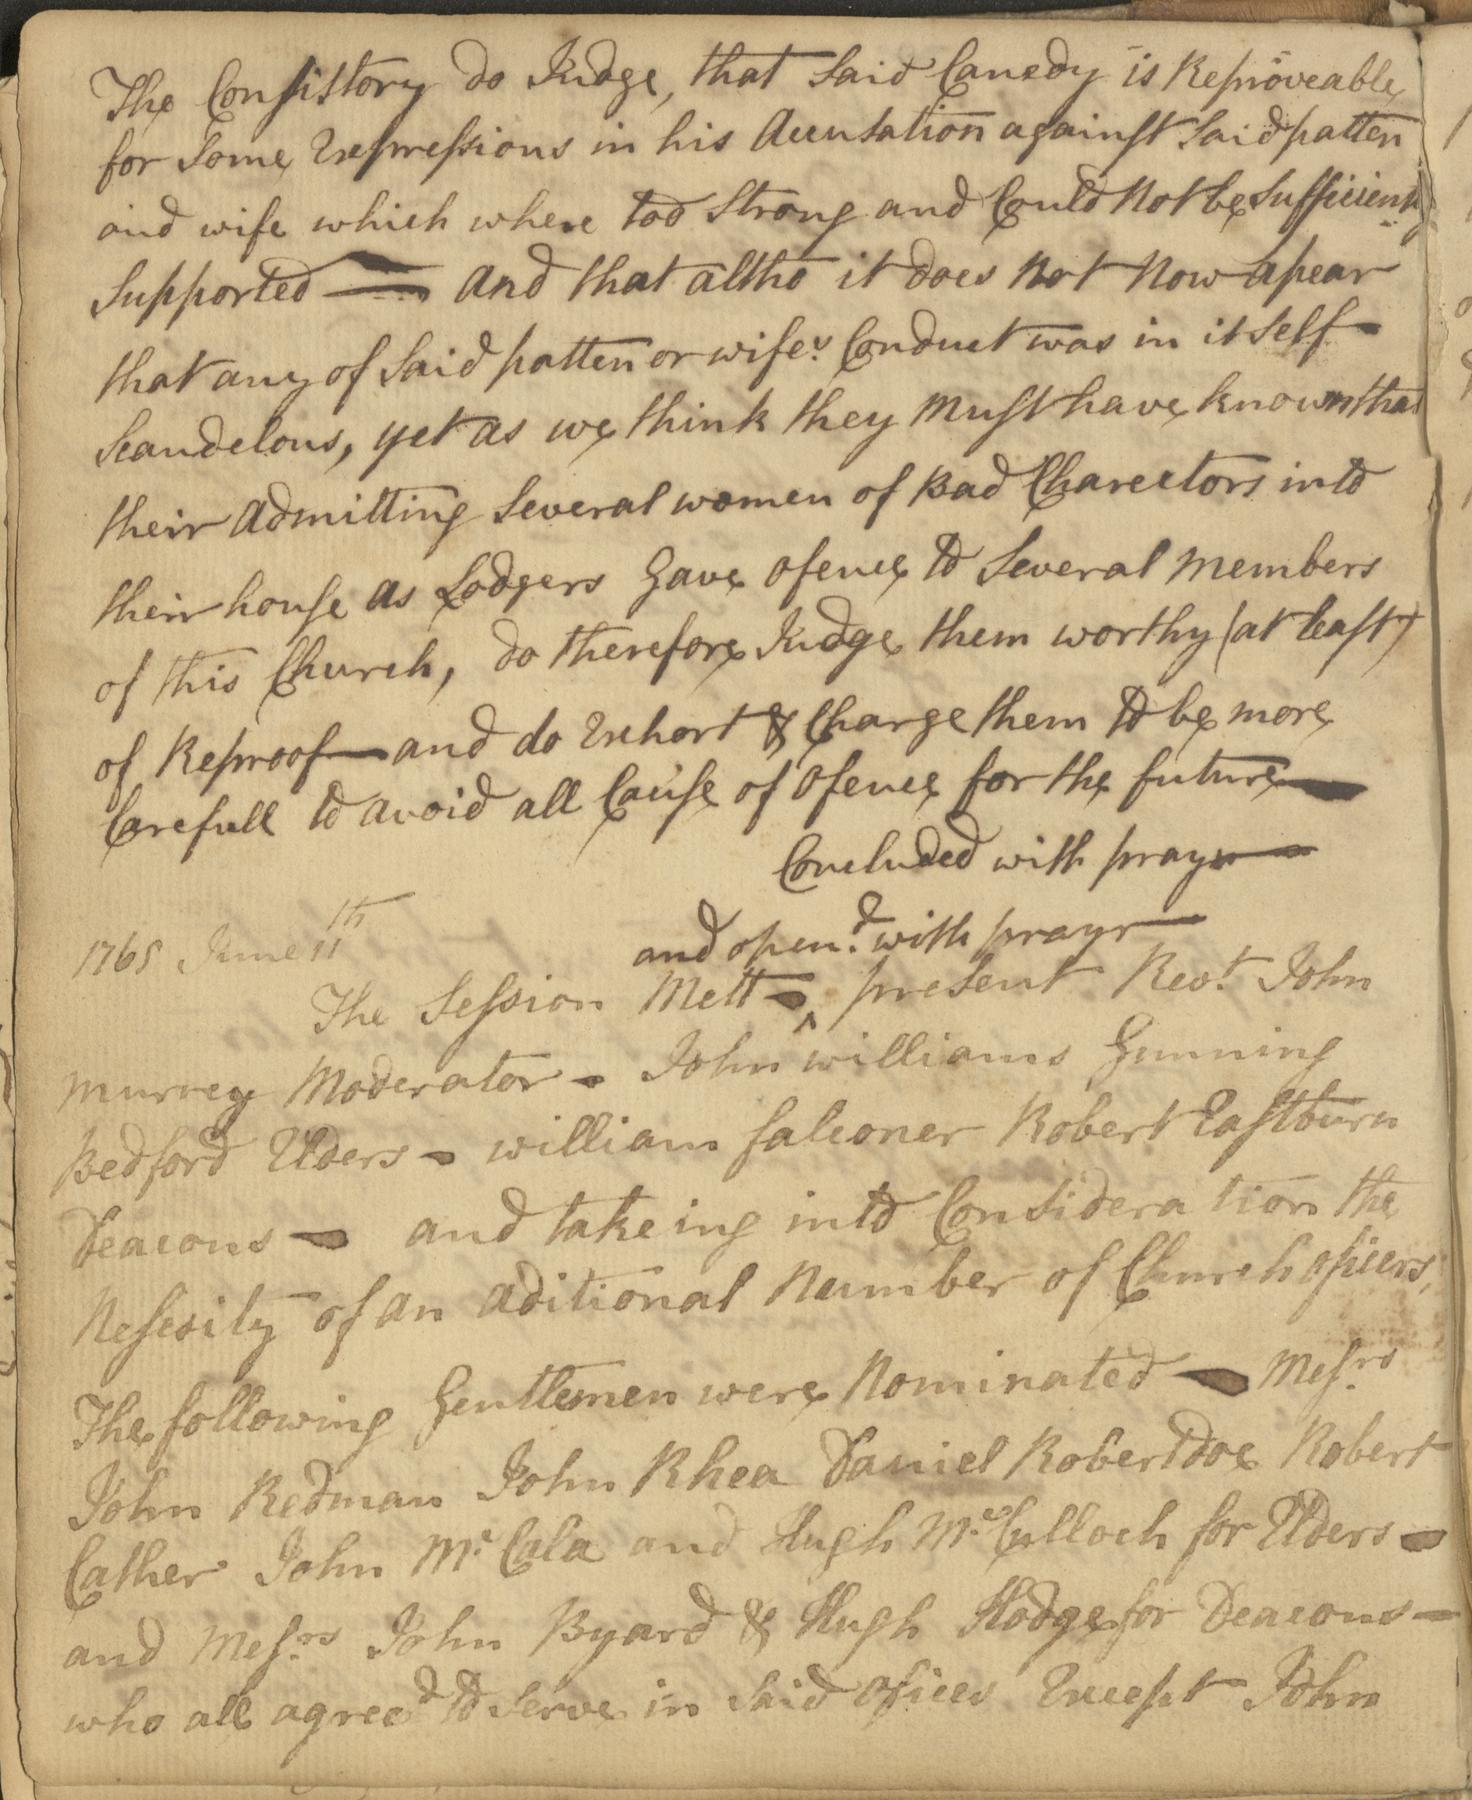 The Consistory do Judge, that Said Canedy is Reproveable
for Some Expressions in his Accusation against Said patten
and wife which where too Strong and Could Not be Sufficiently
Supported — And that altho it does Not Now Apear
that any of Said patten or wifes Conduct was in it Self
Scandelous, yet as we think they Must have known that
their Admitting Several women of Bad Charectors into
their house as Lodgers Gave ofence to Several Members
of this Church, do therefore Judge them worthy (at least)
of Reproof — and do Exhort & Charge them to be more
Carefull to avoid all Cause of Ofence for the future —
Concluded with prayr —
1765 June 11th
and open.d with prayr —
The Session Mett - ^ present Revt. John
Murrey Moderator - John williams Gunning
Bedford Elders - william falconer Robert Eastburn
Deacons - and takeing into Consideration the
Nesesity of an Aditional Number of Church ofiers,
The following Gentlemen were Nominated - Messrs
John Redman John Rhea Daniel Robertdoe Robert
Cather John Mc Cala and Hugh Mc Culloch for Elders -
and Messrs John Byard & Hugh Hodge for Deacons -
who all agreed to Serve in Said Ofices Except John